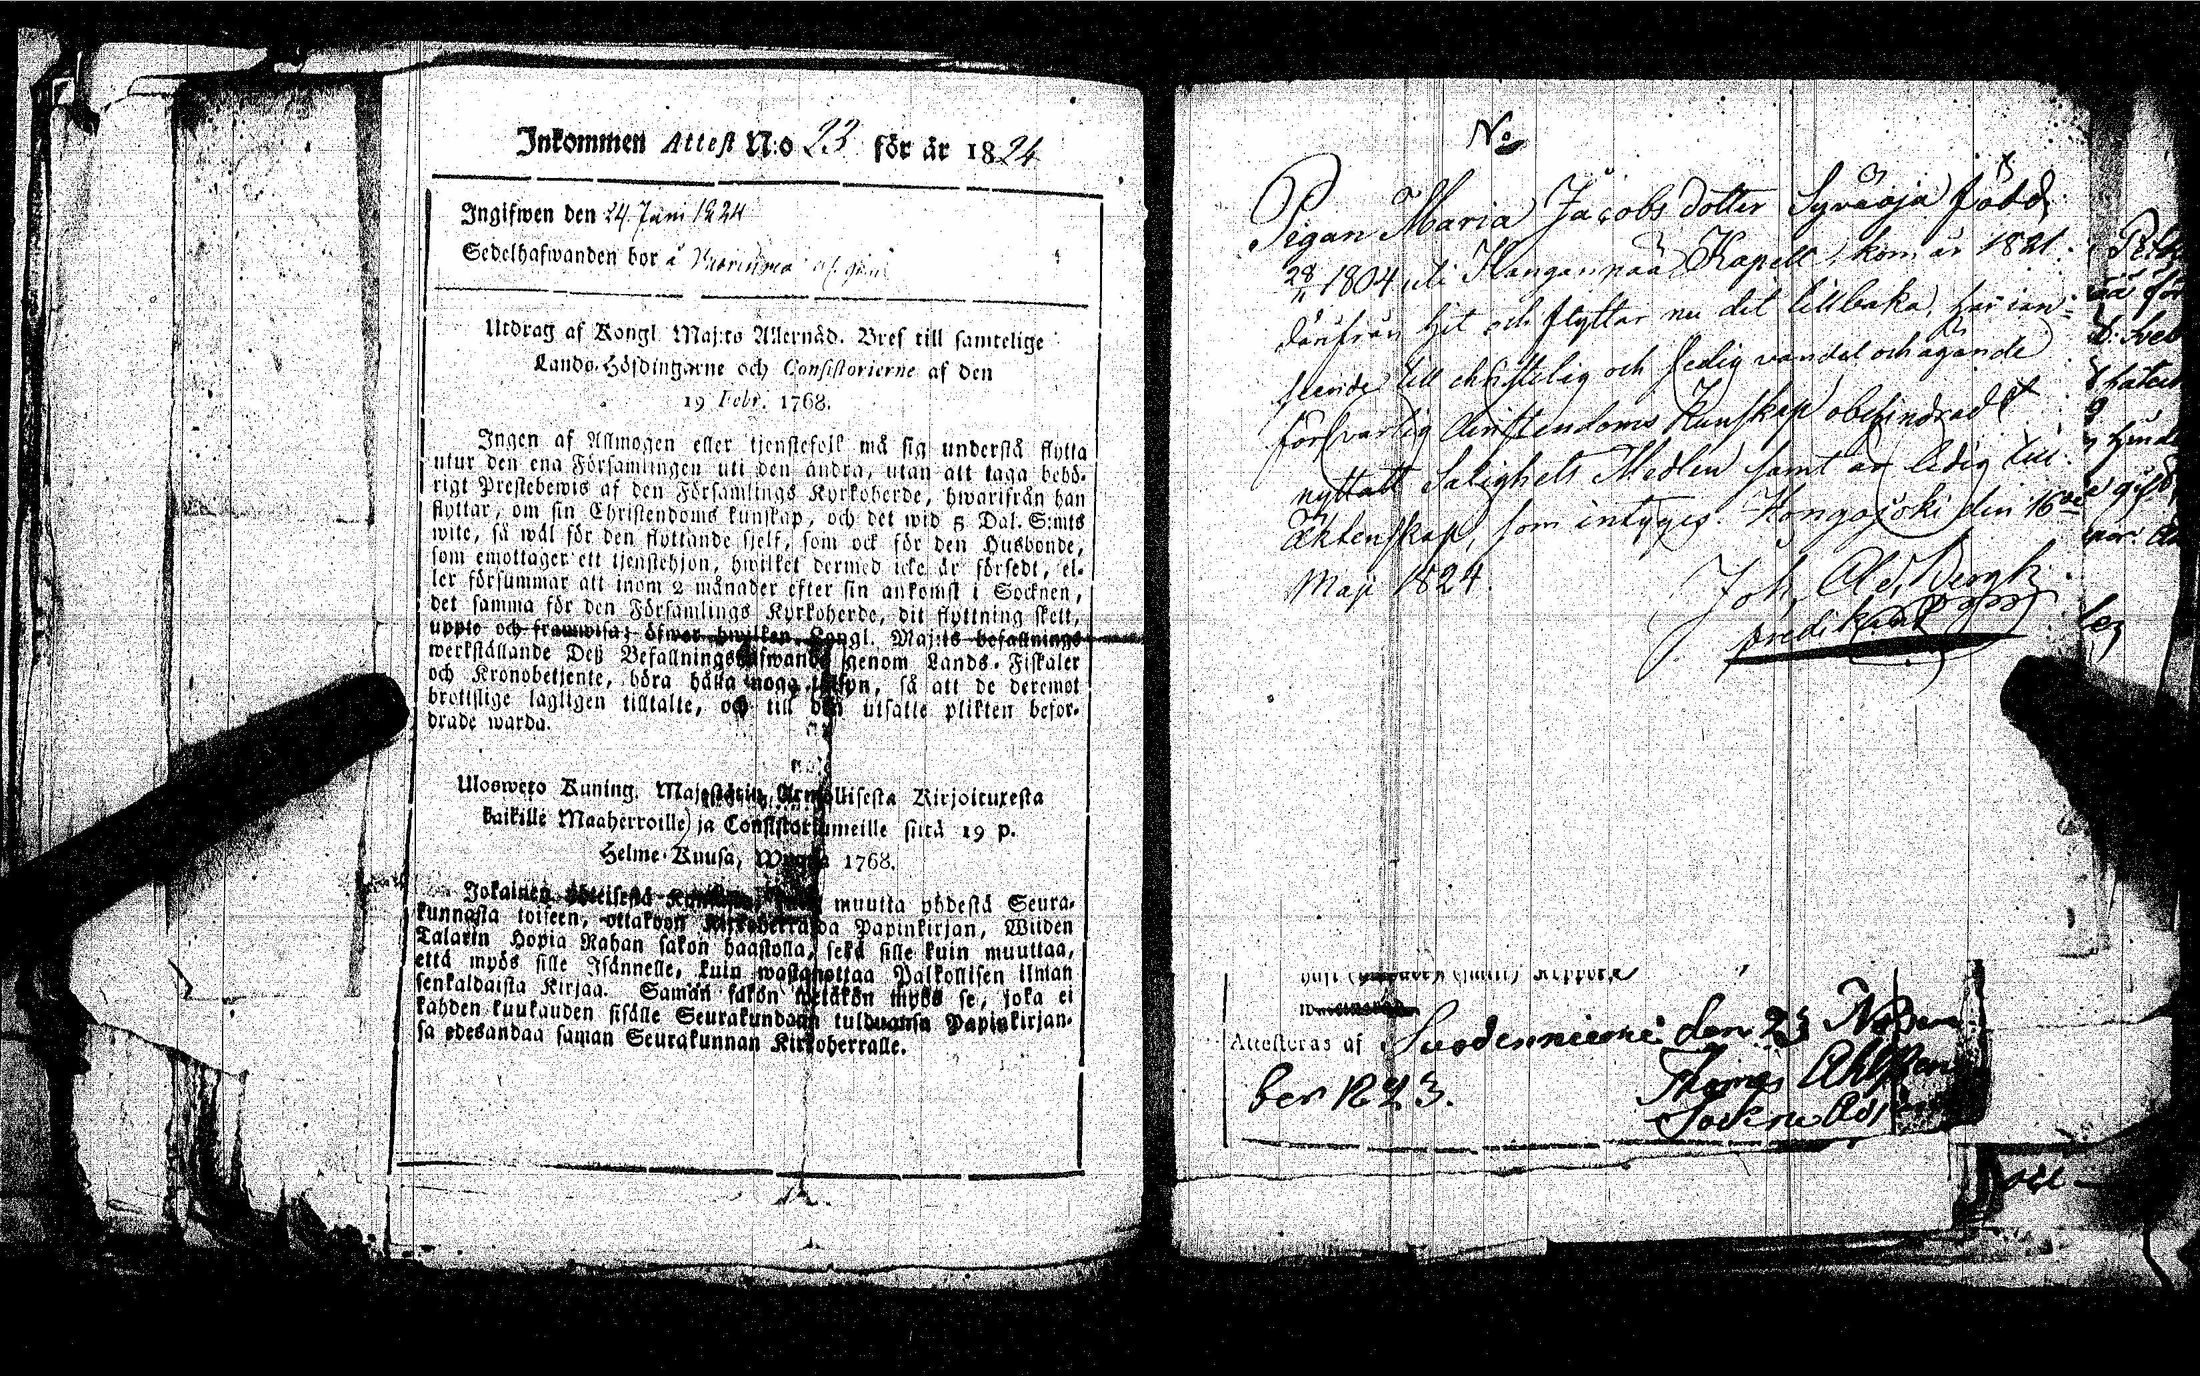 Inkommen Attest N:o 23 för år 1824
Ingifwen den 24 Juni 1824
Sedelhafwanden bor å
Utdrag af Kongl. Maj:ts Allernåd. Bref till samtelige
Lands-Höfdingarne och Consistorierne af den
19 Febr. 1768.
Ingen af Allmogen eller tjenstefolk må sig understå flytta
utur den ena Församlingen uti den andra, utan att taga behö-
rigt Prestebewis af den Församlings Kyrkoherde, hwarifrån han
flyttar, om sin Christendoms kunskap, och det wid 5 Dal. S:mts
wite, så wäl för den flyttande sjelf, som ock för den Husbonde,
som emottager ett tjenstehjon, hwilket dermed icke är försedt, el-
ler försummar att inom 2 månader efter sin ankomst i Socknen,
det samma för den Församlings Kyrkoherde, dit flyttning skett,
uppte och framwisa; öfwer hwilken Kongl. Maj:ts befallnings
werkställande Deß Befallningshafwande genom Lands-Fiskaler
och Kronobetjente, böra hålla noga tillsyn, så att de deremot
brottslige lagligen tilltalte, och till den utsatte plikten befor-
drade warda.
Ulosweto Kuning. Majestätin Armollisesta Kirjoituxesta
kaikille Maaherroille ja Consistoriumeille siitä 19 p.
Helme-Kuusa, Wuonna 1768.
Jokainen muutta yhdestä Seura-
kunnasta toiseen, ottakoon Kirkoherralda Papinkirjan, Wiiden
Talarin Hopia Rahan sakon haastolla, sekä sille kuin muuttaa,
että myös sille Isännelle, kuin wastanottaa Palkollisen ilman
senkaldaista Kirjaa. Saman sakon wetäkön myös se, joka ei
kahden kuukauden sisälle Seurakundaan tulduansa Papinkirjan-
sa edesandaa saman Seurakunnan Kirkoherralle.
No
Pigan Maria Jacobs dotter Syväoja född
28/11 1804 uti Kanganpää Kapell, kom år 1821
därifrån hit och flyttar nu dit tillbaka, har ian-
seende till christelig och sedig vandel och ägande
försvarlig christendoms Kunskap obehindradt
nyttatt Salighets Medlen samt är ledig till
Äktenskap, som intyges. Hongojoki den 16de
Maji 1824.
Joh. Ad. Bergh
predikant
Attesteras af Suodenniemi den 23 Novem
ber 1823.
Thomas